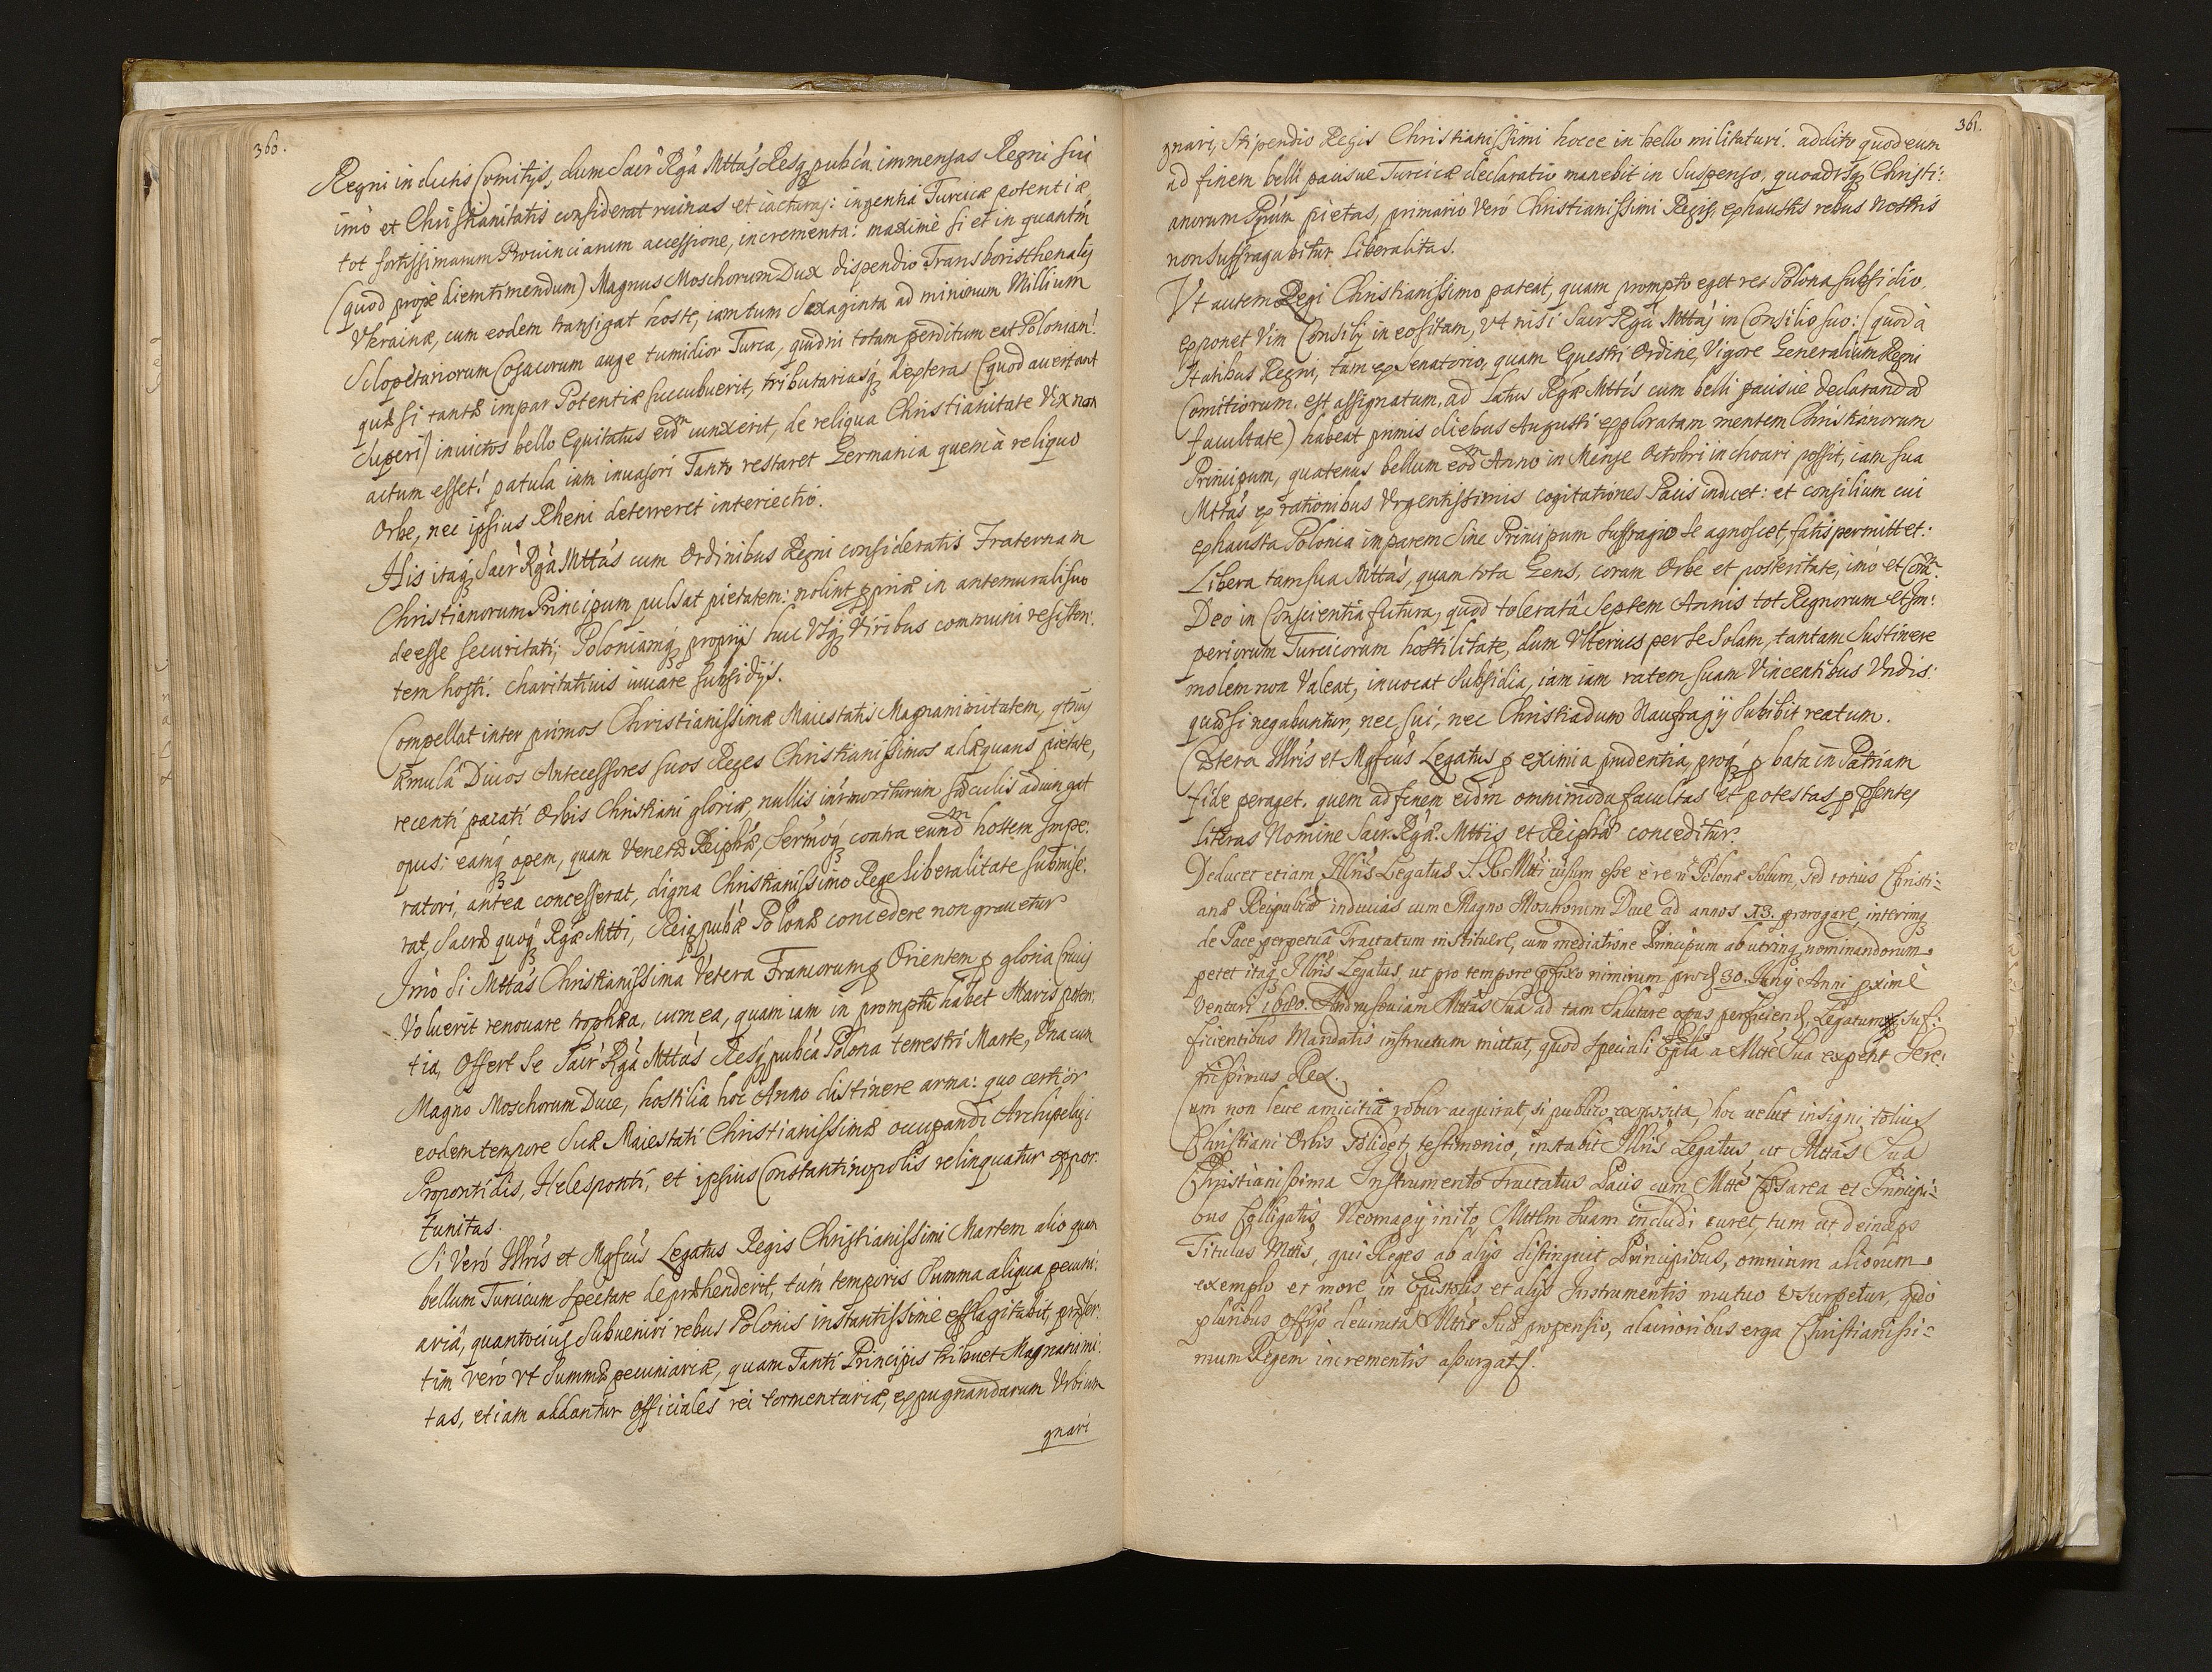 360.
Regni indictis Comitijs, dum Sacr Rga Mttas Resq pubca, immensas Regni sui
imò et Christianitatis considerat ruinas et iacturas: ingentia Turcicæ potentiæ
tot fortissimarum Prouinciarum accessione, incrementa: maximè si et in quantm
(quod propè diem timendum) Magnus Moschorum Dux dispendio Transboristhenalis
Vkrainæ, cum eodem transigat hoste, iam tum Sexaginta ad minimum Millium
Sclopetariorum Cosacorum auge tumidior Turca, quidni totam perditum eat Poloniam!
quæ si tantæ impar Potentiæ succubuerit, tributariasq dexteras (quod auertant
superi) inuictos bello Equitatus eidm iunxerit, de reliqua Christianitate Vix non
actum esset! patula iam inuasori Tanto restaret Germania quem à reliquo
Orbe, nec ipsius Rheni deterreret interiectio.
His itaq Sacr Rga Mttas cum Ordinibus Regni consideratis Fraternam
Christianorum Principum pulsat pietatem: nolint ppriæ in antemurali suo
deesse securitati; Poloniamq proprijs huc Vsq Viribus communi resisten:
tem hosti. charitatiuis iuuare subsidijs.
Compellat inter primos Christianissimæ Maiestatis Magnanimitatem, qtnus
æmulâ Diuos Antecessores suos Reges Christianissimos adæquans pietate,
recenti pacati Orbis Christiani gloriæ, nullis inrmoriturum sæculis adiungat
opus: eamq opem, quam Venetæ Reiphæ, Sermoq contra eundm hostem Impe:
ratori, antea concesserat, digna Christianissimo Rege liberalitate submise:
rat, Sacræ quoq Rgæ Mtti, Reiq pubæ Polonæ concedere non grauetur
Imò si Mttas Christianissima Vetera Francorum p Orientem p gloria Crucis
Voluerit renouare trophæa, cum ea, quam iam in promptu habet Maris poten:
tia, Offert se Sacr Rga Mttas Resq pubca Polona terrestri Marte, Vna cum
Magno Moschorum Duce, hostilia hoc Anno distinere arma: quo certior
eodem tempore Suæ Maiestati Christianissimæ occupandi Archipelagi
Propontidis, Helesponti, et ipsius Constantinopolis relinquatur oppor:
tunitas.
Si Verò Illris et Mgfcus Legatus Regis Christianissimi Martem alio quam
bellum Turcicum spectare depræhenderit, tum temporis Summa aliqua pecuni:
aria, quantocius Subueniri rebus Polonis instantissimè efflagitabit, præser:
tim verò vt Summæ pecuniariæ, quam Tanti Principis tribuet Magnanimi:
tas, etiam addantur officiales rei tormentariæ, expugnandarum Vrbium
gnari
361.
gnari, Stipendio Regis Christianissimi hocce in bello militaturi. addito quod eum
ad finem belli pacisue Turcicæ declaratio manebit in Suspenso, quoadusq Christi:
anorum Ppum pietas, primario Verò Christianissimi Regis, exhaustis rebus Nostris
non Suffragabitur Liberalitas.
Vt autem Regi Christianissimo pateat, quam prompto eget res Polona Subsidio.
exponet Vim Consilij in eo sitam, vt nisi Sacr Rga Mttas in Consilio suo: (quod à
Statibus Regni, tam ex Senatorio, quam Equestri Ordine, Vigore Generalium Regni
Comitiorum, est assignatum, ad Latus Rgæ Mttis cum belli pacisue declarandæ
facultate) habeat primis diebus Augusti exploratam mentem Christianorum
Principum, quatenus bellum eodm Anno in Mense Octobri inchoari possit, iam sua
Mttas ex rationibus Vrgentissimis cogitationes Pacis induet: et consilium cui
exhausta Polonia imparem Sine Principum suffragio se agnoscet, fatis permittet:
Libera tam sua Mttas, quam tota Gens, coram Orbe et posteritate, imò et Coram
Deo in Conscientia futura, quod toleratâ Septem Annis tot Regnorum et Im:
periorum Turcicorum hostilitate, dum Vlterius per se Solam, tantam Sustinere
molem non Valeat, inuocat Subsidia, iam iam ratem suam Vincentibus Vndis:
quæ si negabuntur, nec sui, nec Christiadum Naufragij Subibit reatum.
Cætera Illris et Mgfcus Legatus p eximia prudentia, proq p bata in Patriam
fide peraget. quem ad finem eidm omnimoda facultas et potestas p psentes
literas Nomine Sacr. Rgæ. Mttis et Reiphæ conceditur.
Deducet etiam Illris Legatus S. R. Mtti uisum esse è re ñ Polonæ Solum, sed totius Christi=
anæ Reipublcæ inducias cum Magno Moschorum Duce ad annos 13. prorogare, interimq
de Pace perpetuâ Tractatum instituere, cum mediatione Principum ab utrinq nominandorum.
petet itaq Illris Legatus, ut pro tempore pfixo nimirum pro d 30. Junij Anni pximè
Venturi 1680. Andrussouiam Mttas Sua ad tam Salutare opus perficiend, Legatum suf:
ficientibus Mandatis instructum mittat, quod speciali Epla a Mtte Sua expetit Sere:
nissimus Rex.
Cum non leue amicitiæ robur acquirat, si publico exposita, hoc uelut insigni totius
Christiani Orbis solidet testimonio, instabit Illris Legatus, ut Mttas Sua
Christianissima Instrumento Tractatus Pacis cum Mtte Cæsarea et Principi=
bus Colligatis Neomagij inito Mttem Suam includi curet, tum ut deinceps
Titulus Mttis, qui Reges ab alijs distinguit Principibus, omnium aliorum
exemplo et more in Epistolis et alijs Instrumentis mutuo Vsurpetur, quo
pluribus offijs deuincta Mttis Suæ propensio, alacrioribus erga Christianissi=
mum Regem incrementis assurgat.